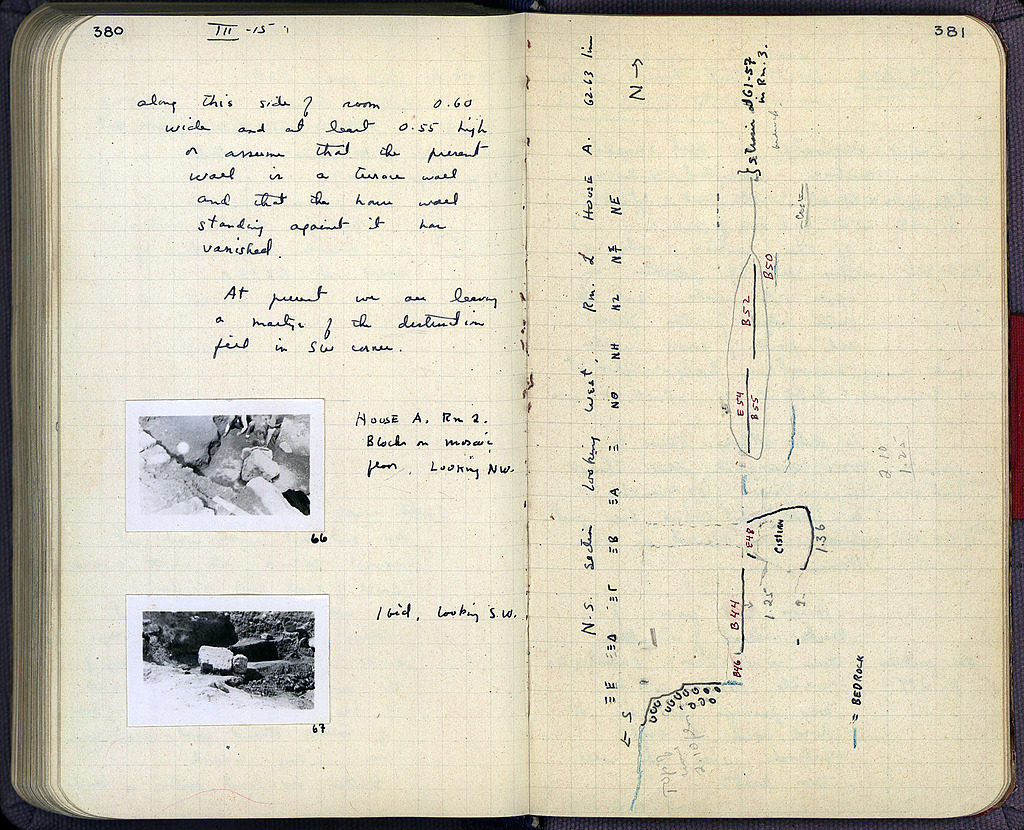 380
III -15
along this side of room 0.60
wide and at least 0.55 high
assume that the present
wall is a terrace wall
and that the house wall
standing against it has
vanished.
At present we are leaving
a martyr of the destruction
fill in SW corner.
HOUSE A. Rm 2.
Blocks on mosaic
floor, Looking NW.
66
Ibid, looking S.W.
67
381
N.S. Section Looking West, Rm. 2 HOUSE A. 62-63
N →
← S
ΞE ΞΔ ΞΓ ΞB ΞA Ξ NΘ NH NZ NE
in Rm. 3.
B50
B52
E54
B55
E48
CISTERN
1.36
B44
1.25
B46
2.10
1.25
= BEDROCK